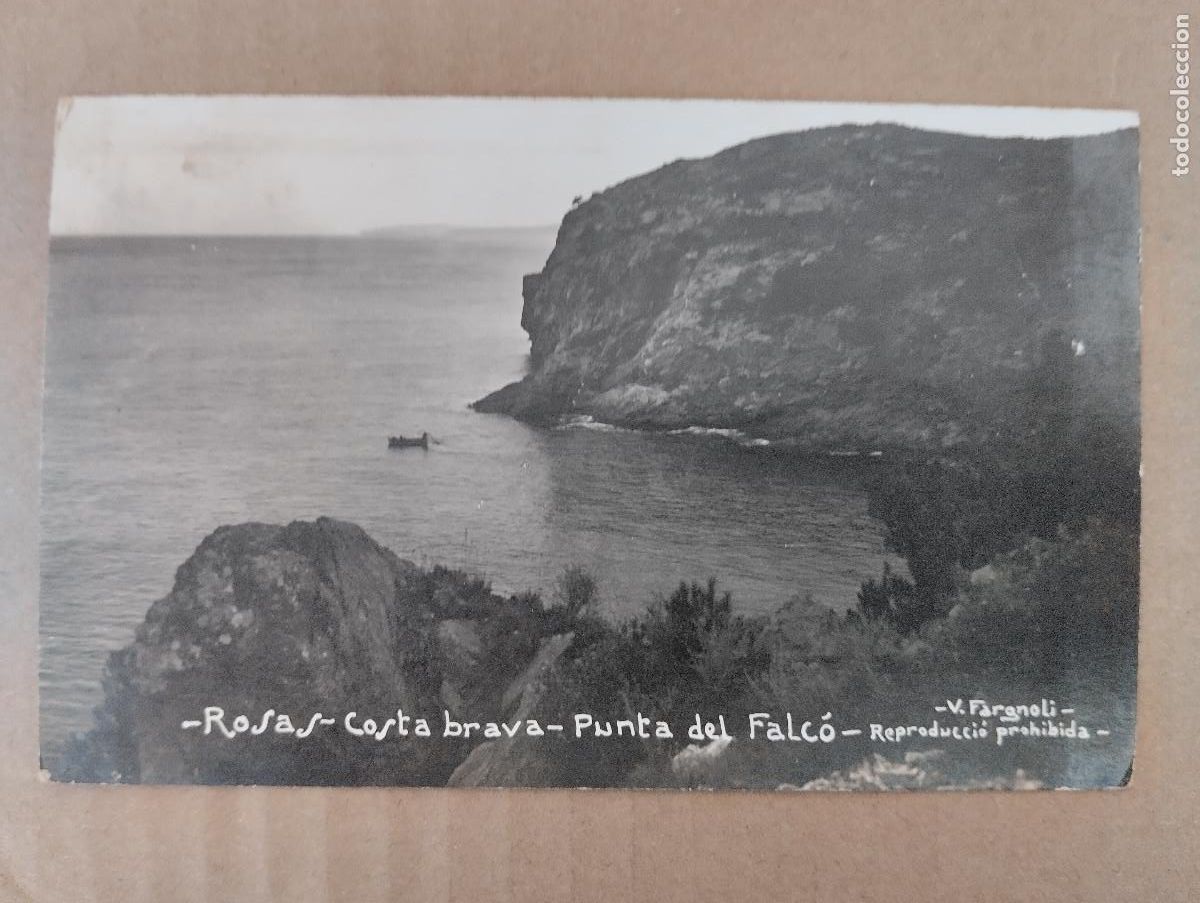 -Rosas-Costa brava-Punta del Falcó-
-V. Fargnoli-
Reproducció prohibida-
todocoleccion